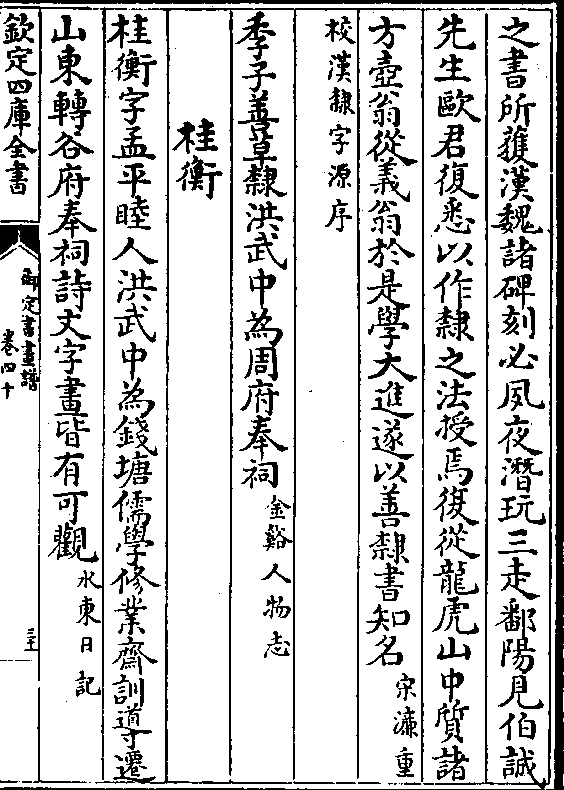 之書所獲漢魏諸碑刻必夙夜潛玩三走鄱陽見伯誠
先生歐君復悉以作隸之法授焉復從龍虎山中質諸
方壺翁從義翁於是學大進遂以善隸書知名宋濂重
校漢隸字源序
季子善草隸洪武中為周府奉祠金谿人物志
桂衡
桂衡字孟平睦人洪武中為錢塘儒學修業齋訓導遷
山東轉谷府奉祠詩文字畫皆有可觀水東日記
欽定四庫全書
御定書畫譜
卷四十